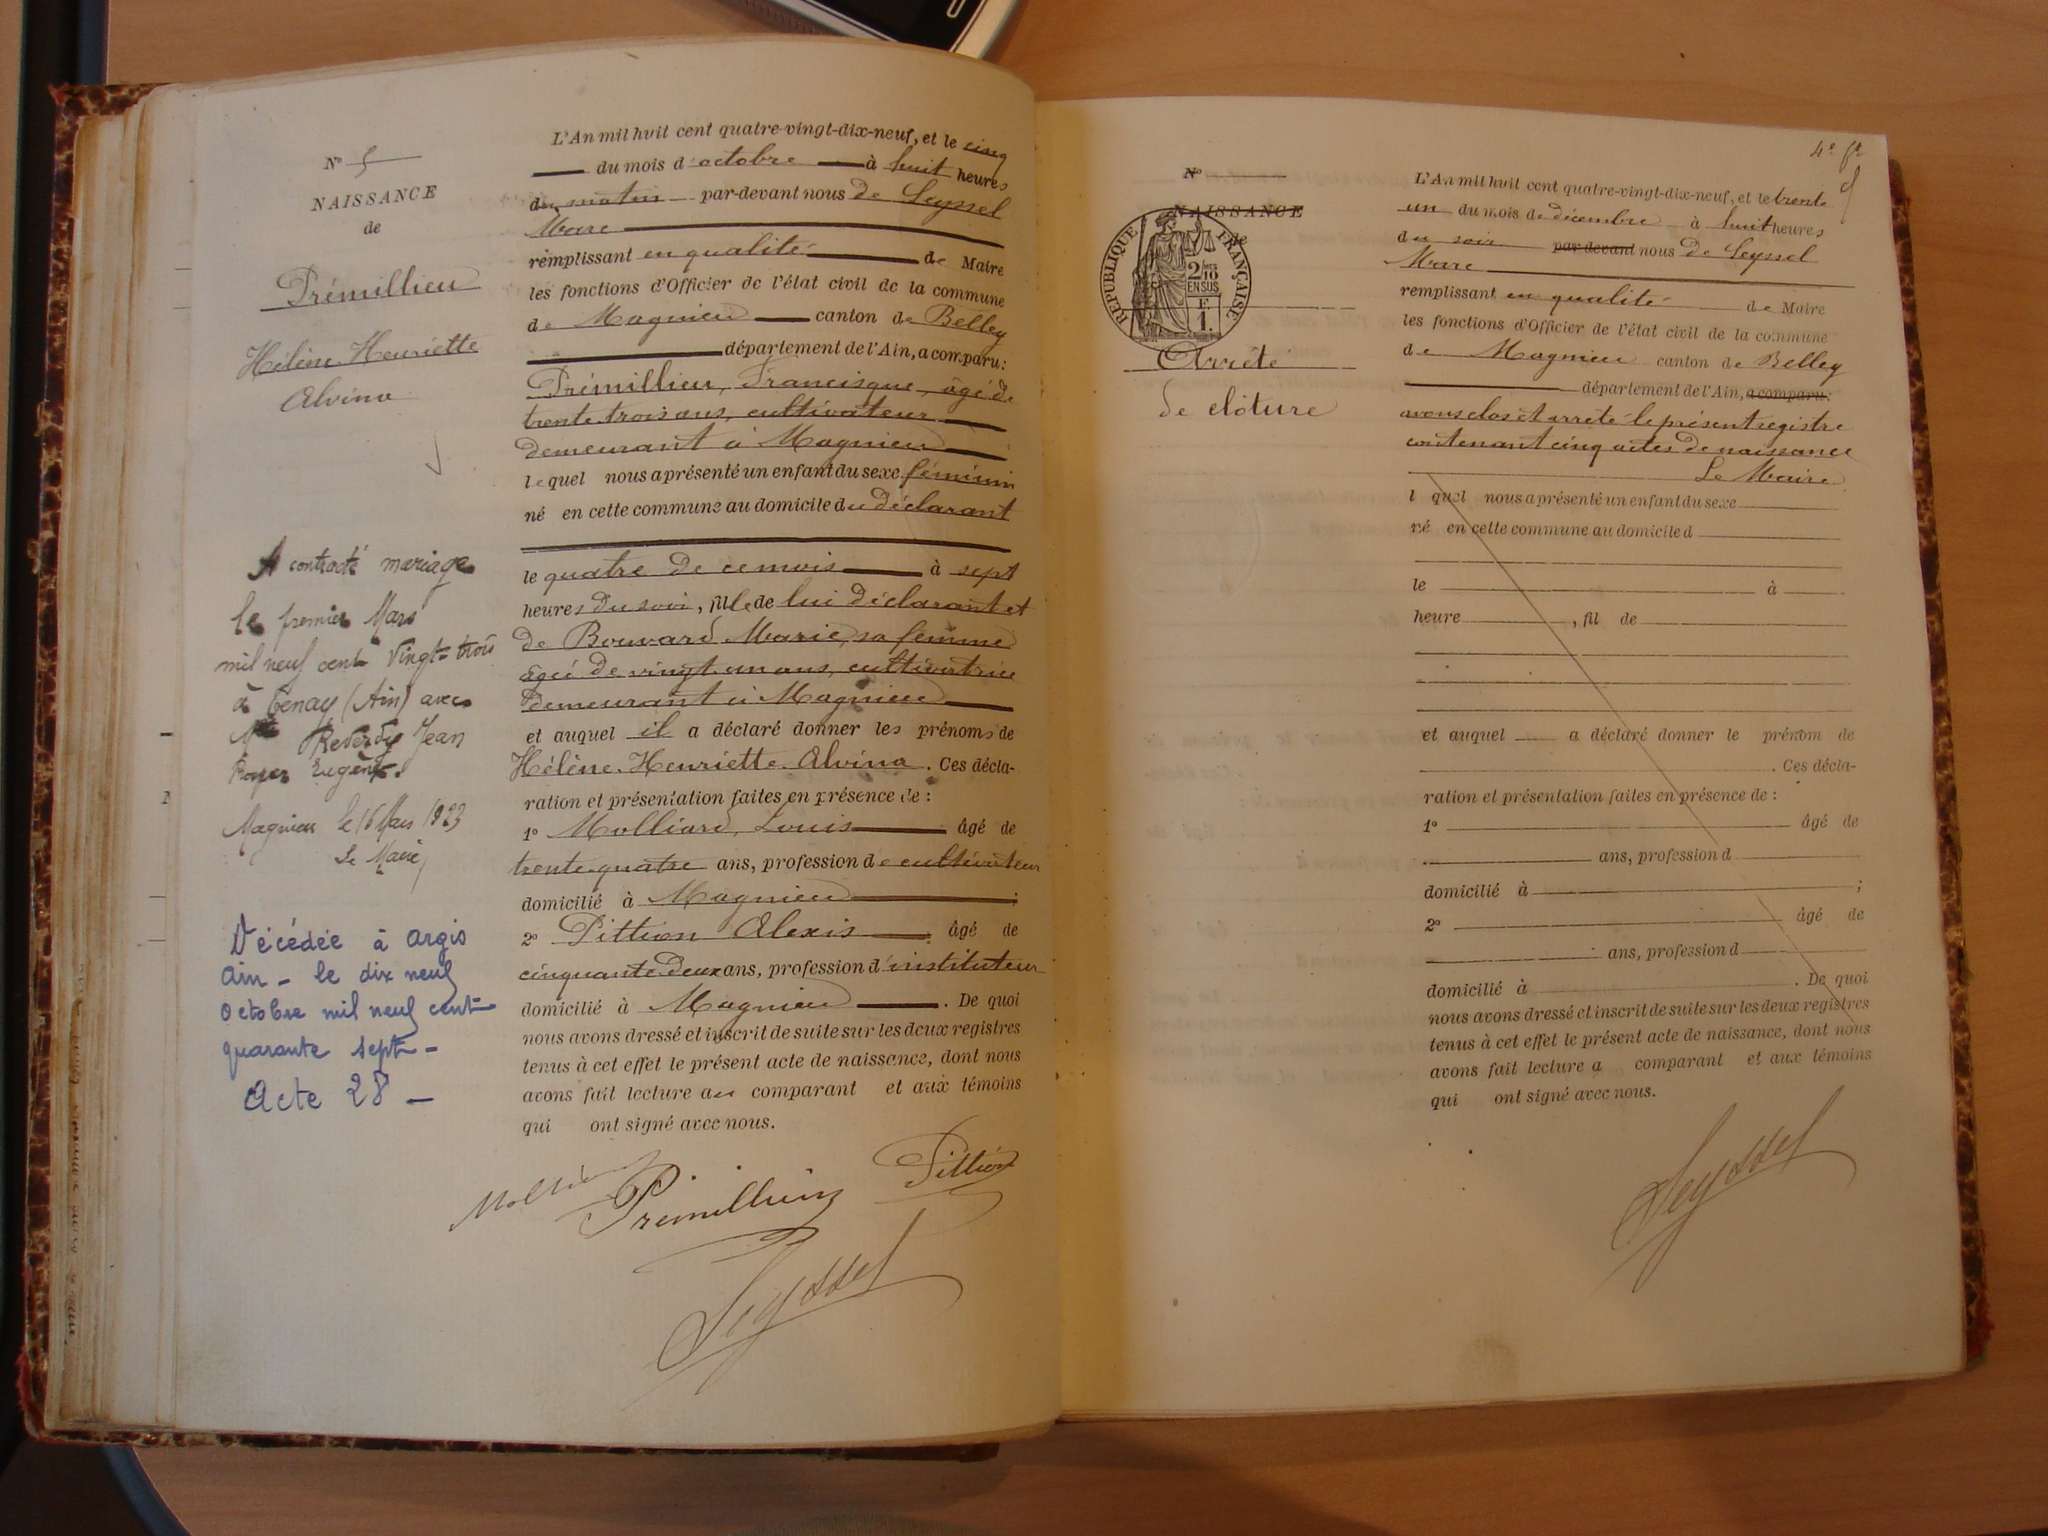 N° 5
NAISSANCE
de
Prémillieu
Hélène Henriette
Alvina
A contracté mariage
le premier Mars
mil neuf cent vingt-trois
à Tenay (Ain) avec
Reverdy Jean
Eugène.
Magnieu le 16 Mars 1923
Le Maire,
Décédée à Argis
Ain - le dix neuf
octobre mil neuf cent
quarante sept -
Acte 28 -
L'An mil huit cent quatre-vingt-dix-neuf, et le cinq
du mois d'octobre à huit heures
du matin par-devant nous De Seyssel
Marc
remplissant en qualité de Maire
les fonctions d'Officier de l'état civil de la commune
de Magnieu canton de Belley
département de l'Ain, a comparu:
Prémillieu, Francisque, âgé de
trente trois ans, cultivateur
demeurant à Magnieu
lequel nous a présenté un enfant du sexe féminin
né en cette commune au domicile du déclarant
le quatre de ce mois à sept
heures du soir, fille de lui déclarant et
de Bouvard Marie, sa femme
âgée de vingt un ans, cultivatrice
demeurant à Magnieu
et auquel il a déclaré donner les prénoms de
Hélène Henriette Alvina. Ces décla-
ration et présentation faites en présence de :
1° Molliard, Louis âgé de
trente quatre ans, profession de cultivateur
domicilié à Magnieu ;
2° Pittion Alexis âgé de
cinquante deux ans, profession d'instituteur
domicilié à Magnieu . De quoi
nous avons dressé et inscrit de suite sur les deux registres
tenus à cet effet le présent acte de naissance, dont nous
avons fait lecture au comparant et aux témoins
qui ont signé avec nous.
Pittion
Seyssel
4e ft
N°
NAISSANCE
de
RÉPUBLIQUE FRANÇAISE
2/10
EN SUS
F
1.
Arrêté
de clôture
L'An mil huit cent quatre-vingt-dix-neuf, et le trente
un du mois de décembre à huit heures
du soir par devant nous De Seyssel
Marc
remplissant en qualité de Maire
les fonctions d'Officier de l'état civil de la commune
de Magnieu canton de Belley
département de l'Ain, a comparu:
avons clos et arrêté le présent registre
contenant cinq actes de naissance
Le Maire
l quel nous a présenté un enfant du sexe
né en cette commune au domicile d
le à
heure , fil de
et auquel a déclaré donner le prénom de
. Ces décla-
ration et présentation faites en présence de :
1° âgé de
ans, profession d
domicilié à ;
2° âgé de
ans, profession d
domicilié à . De quoi
nous avons dressé et inscrit de suite sur les deux registres
tenus à cet effet le présent acte de naissance, dont nous
avons fait lecture a comparant et aux témoins
qui ont signé avec nous.
Seyssel